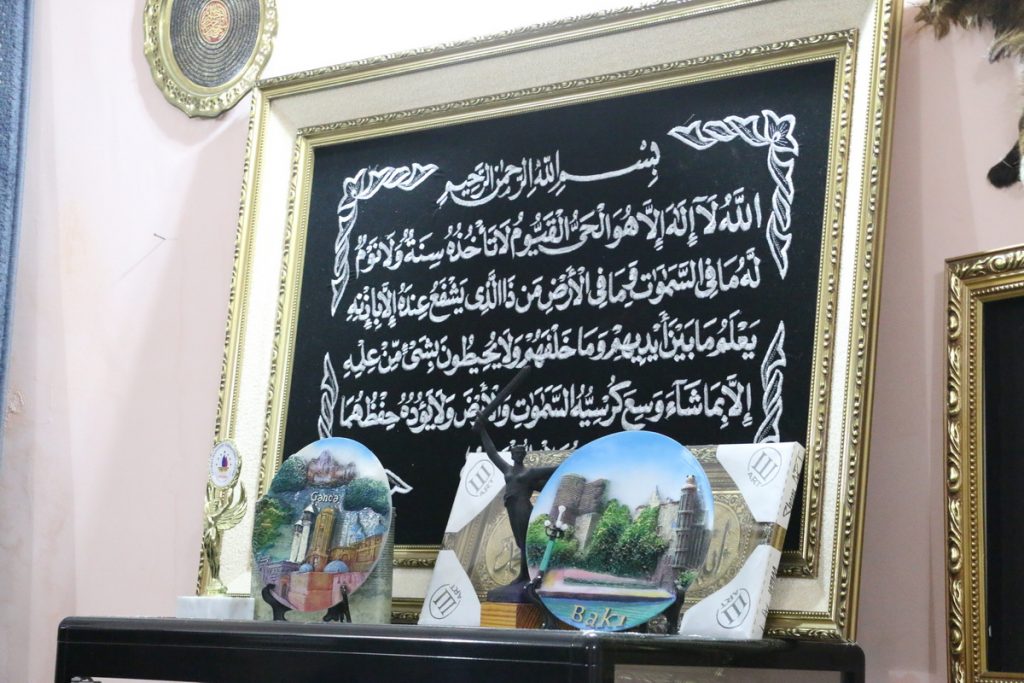 بِسْمِ اللّٰهِ الرَّحْمٰنِ الرَّحِيمِ
اللَّهُ لَآ إِلَهَ إِلَّا هُوَ الْحَىُّ الْقَيُّومُ لَا تَأْخُذُهُ سِنَةٌ وَلَا نَوْمٌ
لَّهُ مَا فِى السَّمٰوٰتِ وَمَا فِى الْأَرْضِ مَن ذَا الَّذِى يَشْفَعُ عِندَهُ إِلَّا بِإِذْنِهِ
يَعْلَمُ مَا بَيْنَ أَيْدِيهِمْ وَمَا خَلْفَهُمْ وَلَا يُحِيطُونَ بِشَىْءٍ مِّنْ عِلْمِهِ
إِلَّا بِمَا شَآءَ وَسِعَ كُرْسِيُّهُ السَّمٰوٰتِ وَالْأَرْضَ وَلَا يَؤُدُهُ حِفْظُهُمَا
Gəncə
Bakı
ART
ART
ART
ART